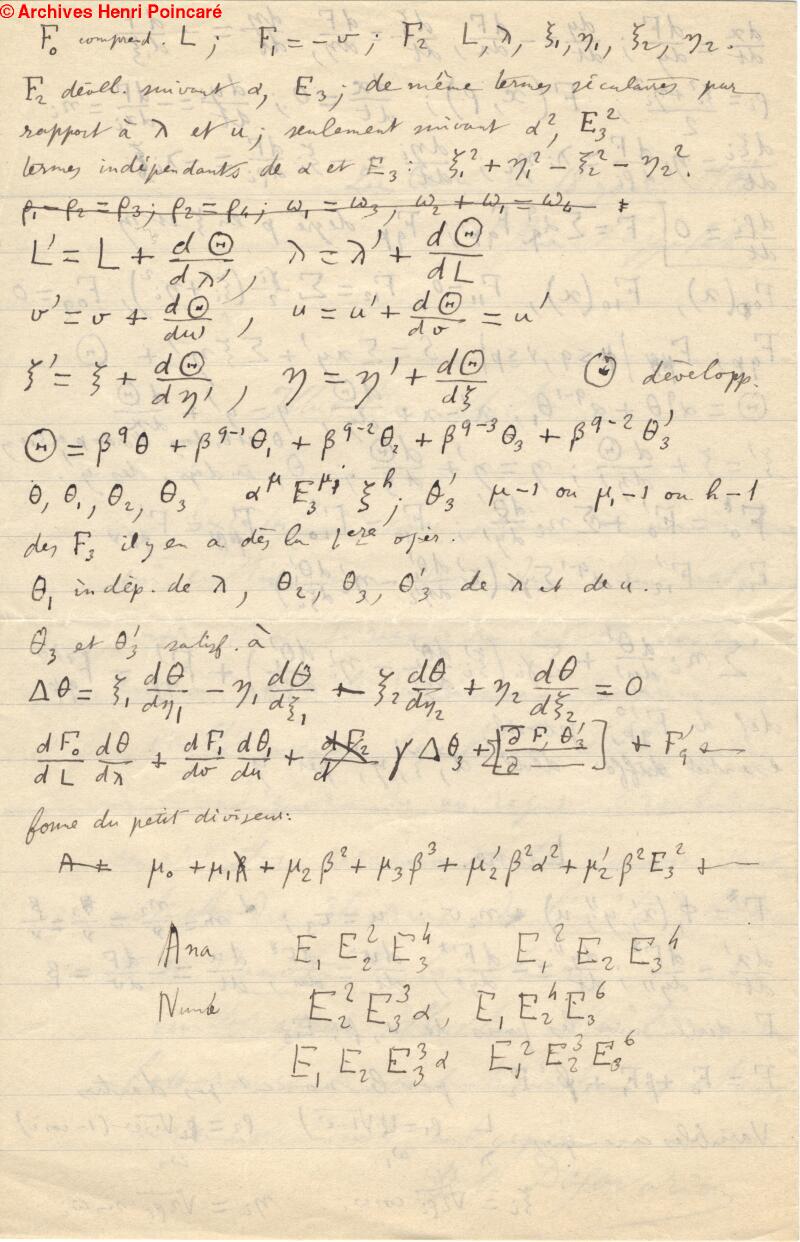 © Archives Henri Poincaré
F₀ comprend. L ; F₁ = −v ; F₂ L, λ, ξ₁, η₁, ξ₂, η₂.
F₂ dévell. suivant α, E₃ ; de même termes séculaires par
rapport à λ et u ; seulement suivant α², E₃²
termes indépendants de α et E₃ : ξ₁² + η₁² − ξ₂² − η₂².
ρ₁ − ρ₂ = ρ₃ ; ρ₂ = ρ₄ ; ω₁ = ω₃, ω₂ + ω₁ = ω₄
L' = L + dΘ/dλ', λ = λ' + dΘ/dL
v' = v + dΘ/du', u = u' + dΘ/dv = u'
ξ' = ξ + dΘ/dη', η = η' + dΘ/dξ Θ développ.
Θ = β^q θ + β^(q−1) θ₁ + β^(q−2) θ₂ + β^(q−3) θ₃ + β^(q−2) θ₃'
θ, θ₁, θ₂, θ₃ α^μ E₃^μ₁ ξ^h ; θ₃' μ−1 ou μ₁−1 ou h−1
des F₃ il y en a dès la 1ere opér.
θ₁ indép. de λ, θ₂, θ₃, θ₃' de λ et de u.
θ₃ et θ₃' satisf. à
Δθ = ξ₁ dθ/dη₁ − η₁ dθ/dξ₁ − ξ₂ dθ/dη₂ + η₂ dθ/dξ₂ = 0
dF₀/dL dθ/dλ + dF₁/dv dθ₁/du + dF₂/d γ Δθ₃ + Σ[∂ F, θ₃'/∂ —] + F'q + —
forme du petit diviseur :
A + μ₀ + μ₁β + μ₂β² + μ₃β³ + μ₂'β²α² + μ₂'β²E₃² + —
Ana E₁ E₂² E₃⁴ E₁² E₂ E₃⁴
Numé E₂² E₃³ α, E₁ E₂⁴ E₃⁶
E₁ E₂ E₃³ α E₁² E₂³ E₃⁶